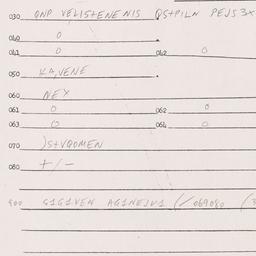 030 QNP VELISTENENIS QSTPILN PEJS3X
040 0
041 0 042 0
050 KA,VENE
060 NEX
061 0 062 0
063 0 064 0
070 )STVQOMEN
080 +/-
900 G1G1VEN AG1NEJV1 (/069080 (3